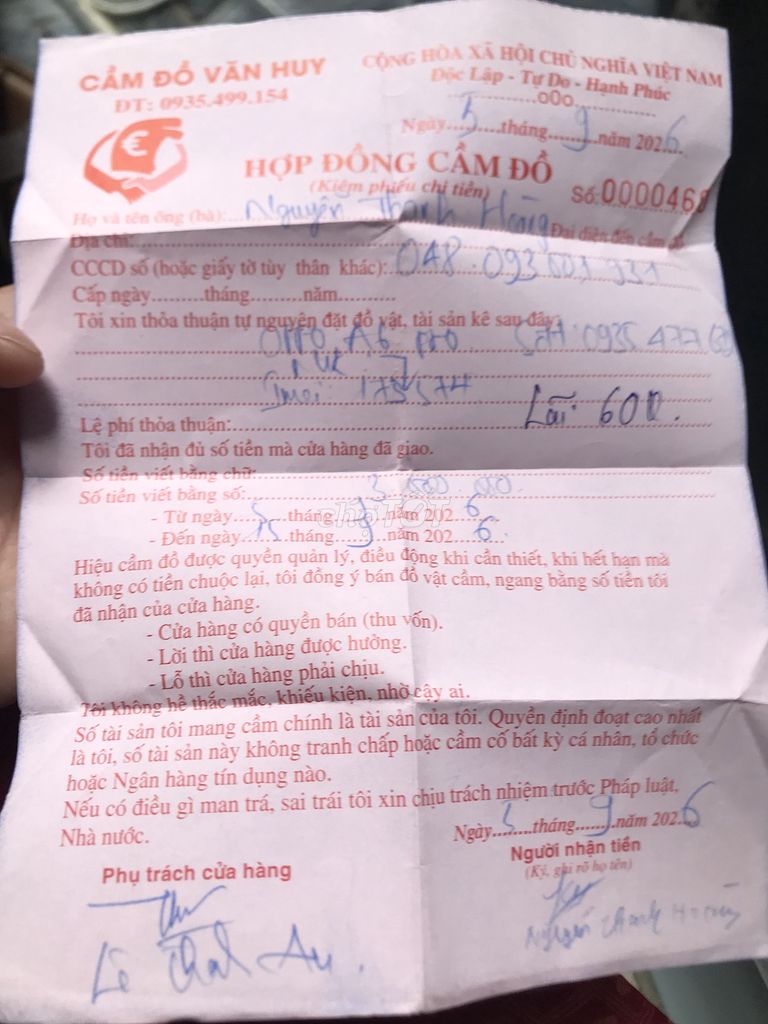 CẦM ĐỒ VĂN HUY
ĐT: 0935.499.154
CỘNG HÒA XÃ HỘI CHỦ NGHĨA VIỆT NAM
Độc Lập - Tự Do - Hạnh Phúc
oOo
Ngày 5 tháng 9 năm 2026
HỢP ĐỒNG CẦM ĐỒ
(Kiêm phiếu chi tiền)
Số: 0000468
Họ và tên ông (bà): Nguyễn Thanh Hoàng Đại diện đến cầm đồ
Địa chỉ:
CCCD số (hoặc giấy tờ tùy thân khác): 048.093.001 931
Cấp ngày.........tháng.........năm..........
Tôi xin thỏa thuận tự nguyện đặt đồ vật, tài sản kê sau đây:
OPPO A6 pro SĐT: 0935 477
Imei: 175574
Lãi: 600.
Lệ phí thỏa thuận:
Tôi đã nhận đủ số tiền mà cửa hàng đã giao.
Số tiền viết bằng chữ:
Số tiền viết bằng số: 3 000
- Từ ngày 5 tháng 9 năm 2026
- Đến ngày 15 tháng 9 năm 2026
chợTỐT
Hiệu cầm đồ được quyền quản lý, điều động khi cần thiết, khi hết hạn mà
không có tiền chuộc lại, tôi đồng ý bán đồ vật cầm, ngang bằng số tiền tôi
đã nhận của cửa hàng.
- Cửa hàng có quyền bán (thu vốn).
- Lời thì cửa hàng được hưởng.
- Lỗ thì cửa hàng phải chịu.
Tôi không hề thắc mắc, khiếu kiện, nhờ cậy ai.
Số tài sản tôi mang cầm chính là tài sản của tôi. Quyền định đoạt cao nhất
là tôi, số tài sản này không tranh chấp hoặc cầm cố bất kỳ cá nhân, tổ chức
hoặc Ngân hàng tín dụng nào.
Nếu có điều gì man trá, sai trái tôi xin chịu trách nhiệm trước Pháp luật,
Nhà nước.
Ngày 5 tháng 9 năm 2026
Phụ trách cửa hàng
Người nhận tiền
(Ký, ghi rõ họ tên)
Lê
Nguyễn Thanh Hoàng